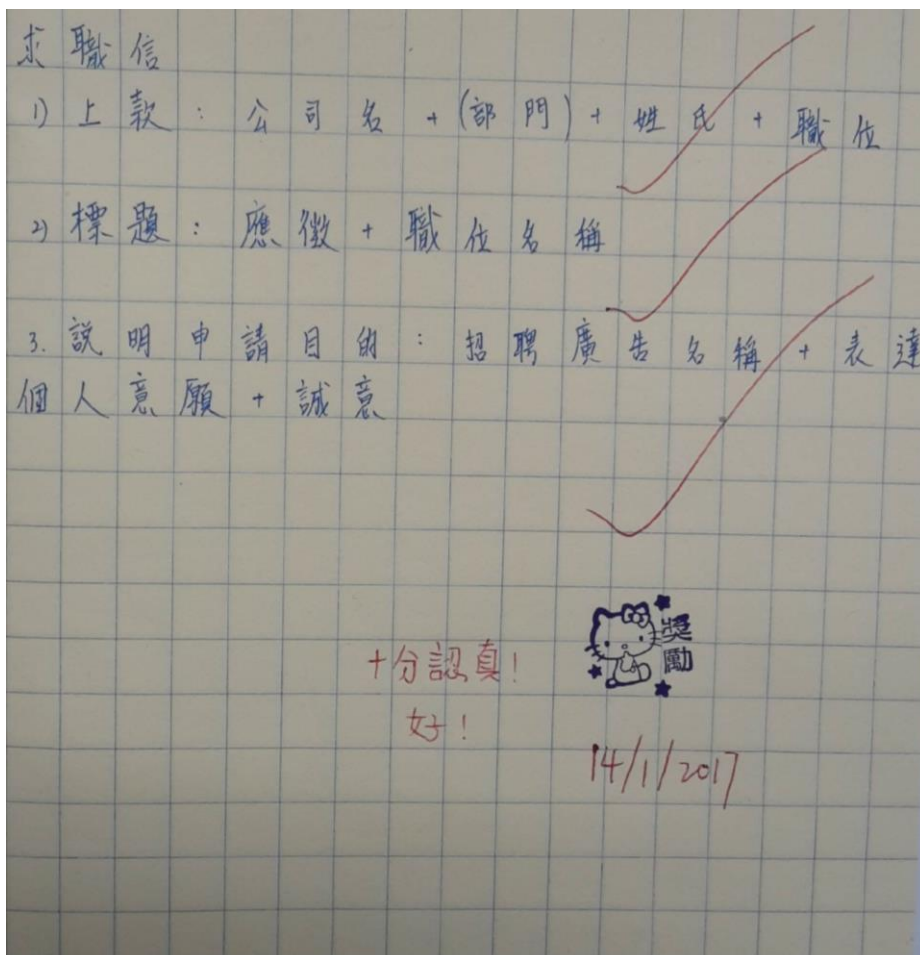 求職信
1) 上款：公司名 + (部門) + 姓氏 + 職位
2) 標題：應徵 + 職位名稱
3. 説明申請目的：招聘廣告名稱 + 表達
個人意願 + 誠意
十分認真！
好！
獎
勵
14/1/2017